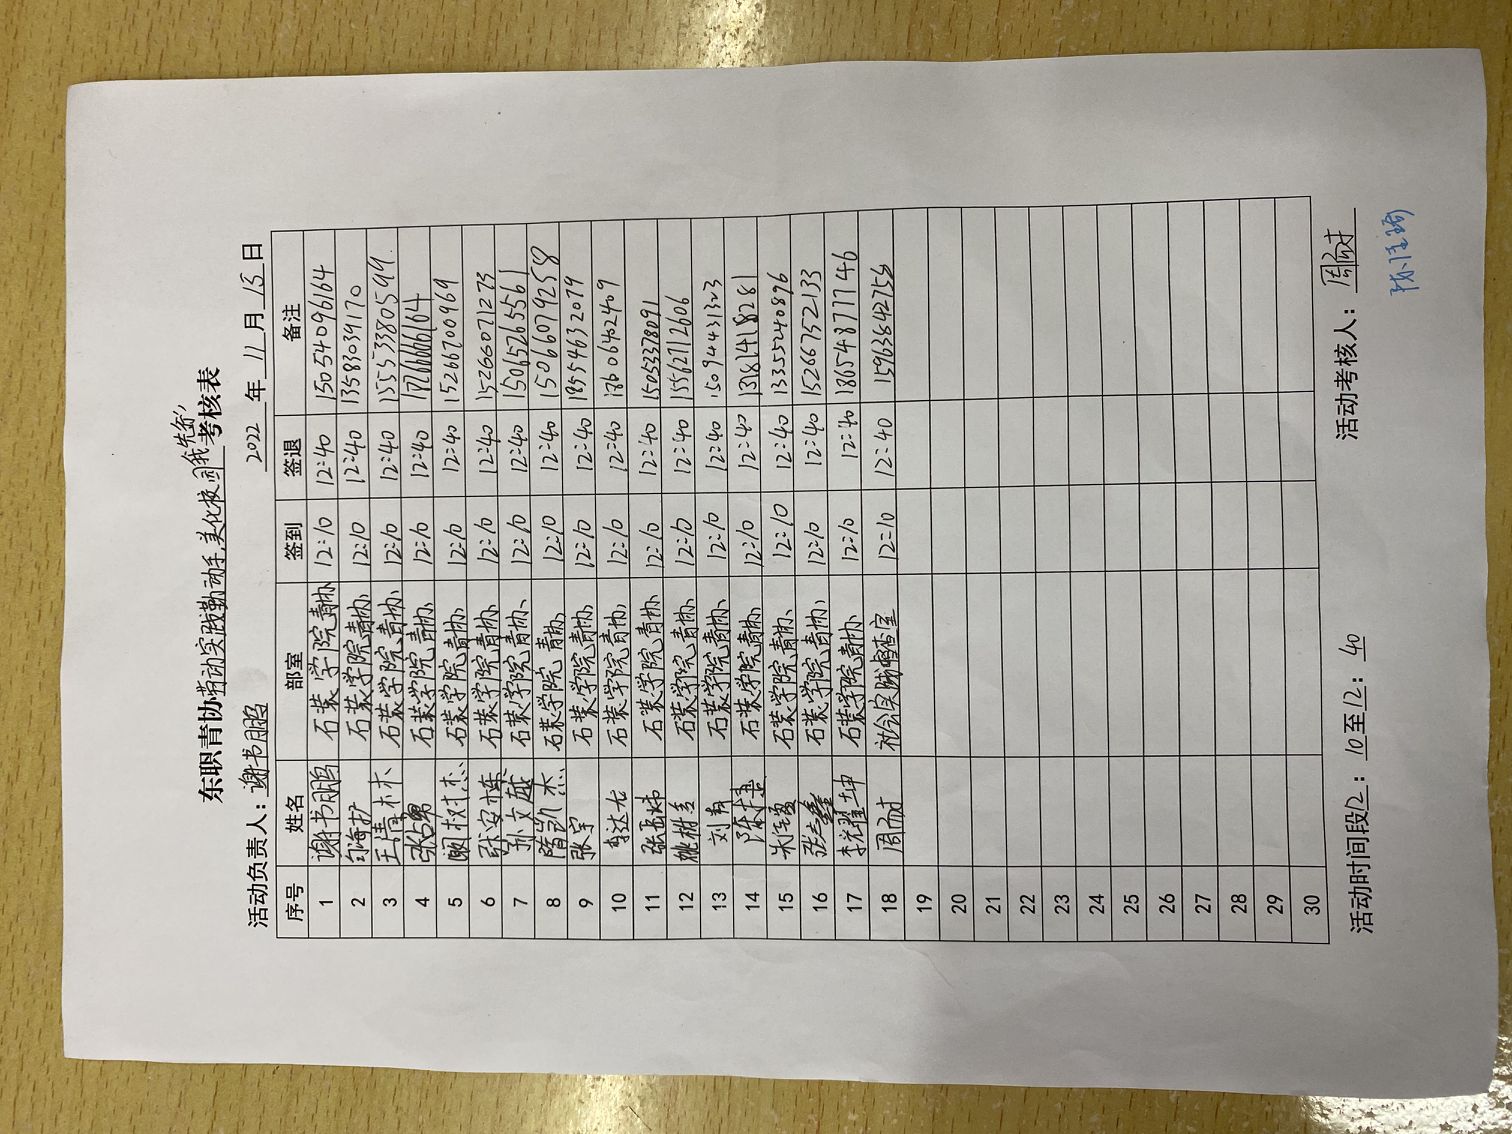 东职青协劳动实践勤动手,美化校园我先行考核表
活动负责人：谢书鹏 2022 年 11 月 15 日
序号 姓名 部室 签到 签退 备注
1 谢书鹏 石装学院青协 12:10 12:40 15054096164
2 石装学院青协 12:10 12:40 13583039170
3 石装学院青协 12:10 12:40 15553380599
4 石装学院青协 12:10 12:40 17266606164
5 阚树杰 石装学院青协 12:10 12:40 15266700969
6 张安栋 石装学院青协 12:10 12:40 15266071273
7 孙文越 石装学院青协 12:10 12:40 15065265561
8 隋凯杰 石装学院青协 12:10 12:40 15066079258
9 张宇 石装学院青协 12:10 12:40 18554632079
10 李达 石装学院青协 12:10 12:40 18606402409
11 石装学院青协 12:10 12:40 15053378091
12 石装学院青协 12:10 12:40 15562112606
13 石装学院青协 12:10 12:40 15094431323
14 石装学院青协 12:10 12:40 13181418281
15 石装学院青协 12:10 12:40 13355240896
16 石装学院青协 12:10 12:40 15266752133
17 李耀坤 石装学院青协 12:10 12:40 18654877746
18 周 社会实践督查室 12:10 12:40
19
20
21
22
23
24
25
26
27
28
29
30
活动时间段12：10至12：40 活动考核人：周